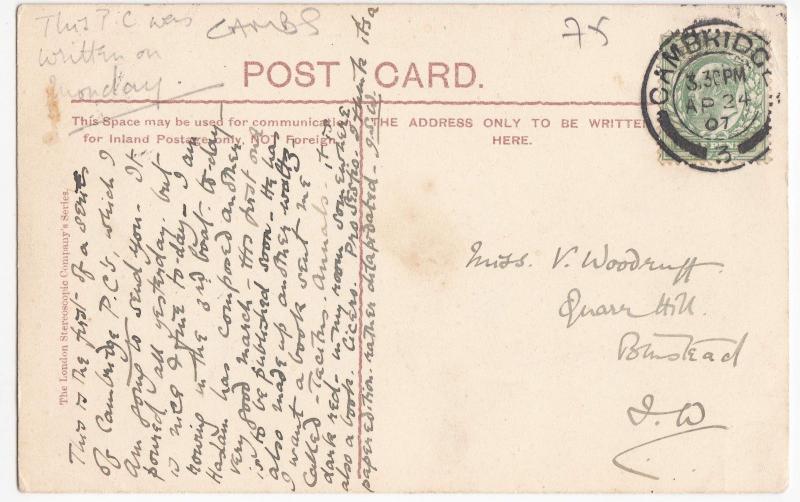 This P.C was
written on
Monday.
CAMBS
75
POST CARD.
This Space may be used for communication
for Inland Postage only, NOT Foreign
THE ADDRESS ONLY TO BE WRITTEN
HERE.
CAMBRIDGE
3.30PM
AP 24
07
The London Stereoscopic Company's Series.
This is the first of a series
of Cambridge P.C's, which I
am going to send you. It
poured all yesterday, but
is nice & fine to-day. I am
rowing in the 3rd boat to-day.
has composed another
very good march - his first one
is to be published soon. He has
also made up another waltz
I want a book sent me
called - Tacitus. Annals. it's
dark red - in my room somewhere
also a book Cicero. Pro Sestio I think its a
paper edition. rather dilapidated.
Miss. V. Woodruff.
Quarr Hill.
Binstead
I. W